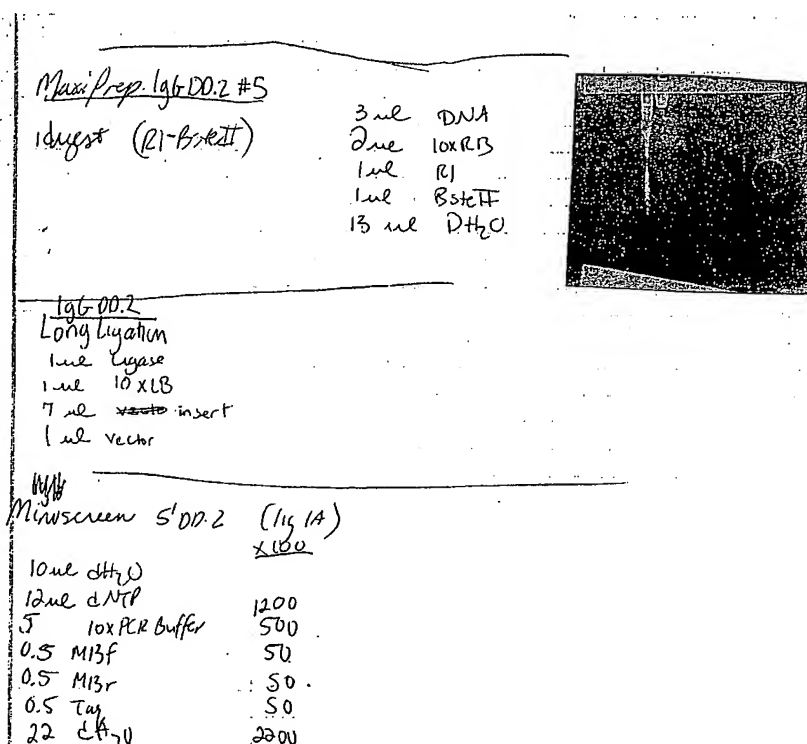 Maxi Prep IgG DD.2 #5
1 digest (RI-BsteII)
3 ul DNA
2 ul 10xRB
1 ul RI
1 ul BsteII
13 ul DH2O
IgG DD.2
Long Ligation
1 ul Ligase
1 ul 10xLB
7 ul insert
1 ul vector
Miniscreen 5' DD.2 (lig 1A)
x100
10 ul dH2O
12 ul dNTP 1200
5 10x PCR Buffer 500
0.5 M13f 50
0.5 M13r 50
0.5 Taq 50
22 dH2O 2200